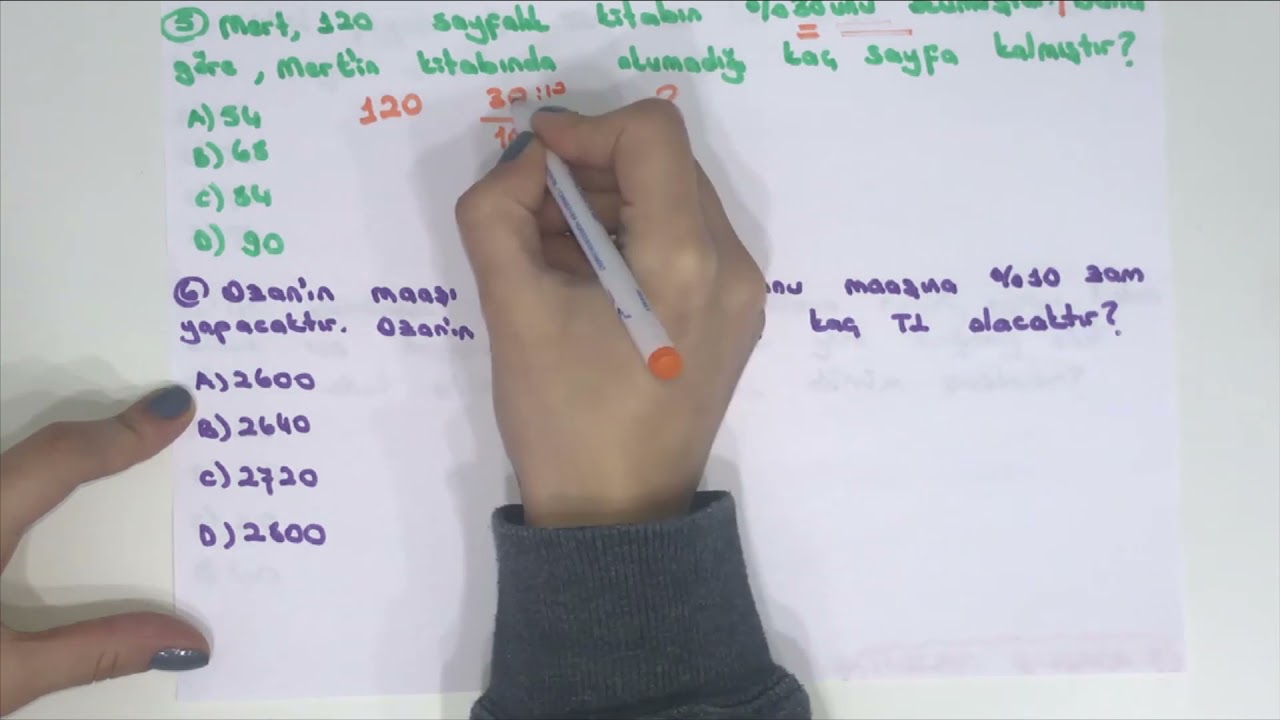 5) Mert, 120 sayfalık kitabın %30'unu okumuştur. Buna
göre, Mert'in kitabında okumadığı kaç sayfa kalmıştır?
120 30 :10
A) 54
B) 68
C) 84
D) 90
6) Ozan'ın maaşı maaşına %10 zam
yapacaktır. Ozan'ın kaç TL olacaktır?
A) 2600
B) 2640
C) 2720
D) 2800